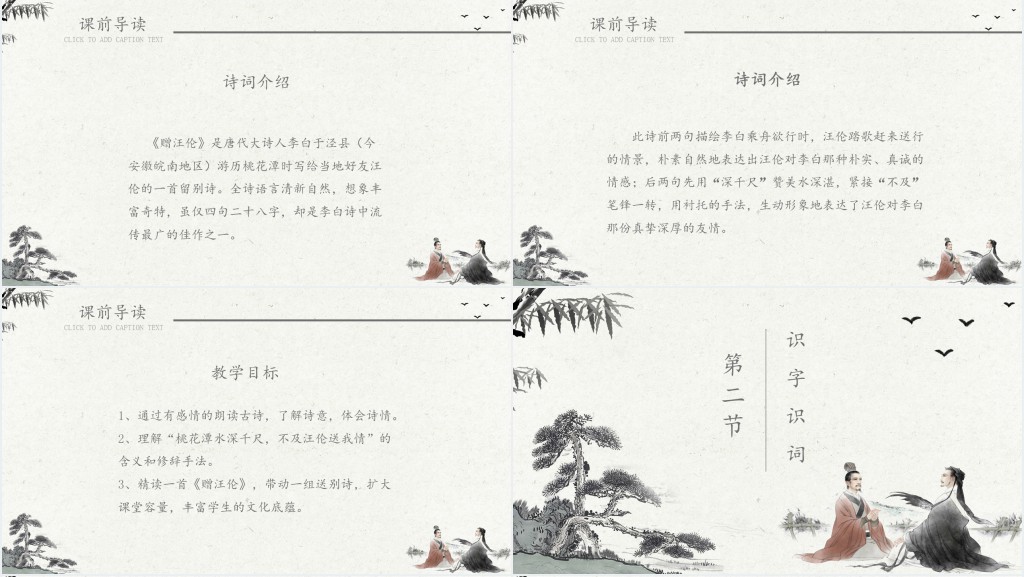 课前导读
CLICK TO ADD CAPTION TEXT
诗词介绍
《赠汪伦》是唐代大诗人李白于泾县（今
安徽皖南地区）游历桃花潭时写给当地好友汪
伦的一首留别诗。全诗语言清新自然，想象丰
富奇特，虽仅四句二十八字，却是李白诗中流
传最广的佳作之一。
课前导读
CLICK TO ADD CAPTION TEXT
诗词介绍
此诗前两句描绘李白乘舟欲行时，汪伦踏歌赶来送行
的情景，朴素自然地表达出汪伦对李白那种朴实、真诚的
情感；后两句先用“深千尺”赞美水深湛，紧接“不及”
笔锋一转，用衬托的手法，生动形象地表达了汪伦对李白
那份真挚深厚的友情。
课前导读
CLICK TO ADD CAPTION TEXT
教学目标
1、通过有感情的朗读古诗，了解诗意，体会诗情。
2、理解“桃花潭水深千尺，不及汪伦送我情”的
含义和修辞手法。
3、精读一首《赠汪伦》，带动一组送别诗，扩大
课堂容量，丰富学生的文化底蕴。
第二节
识字识词